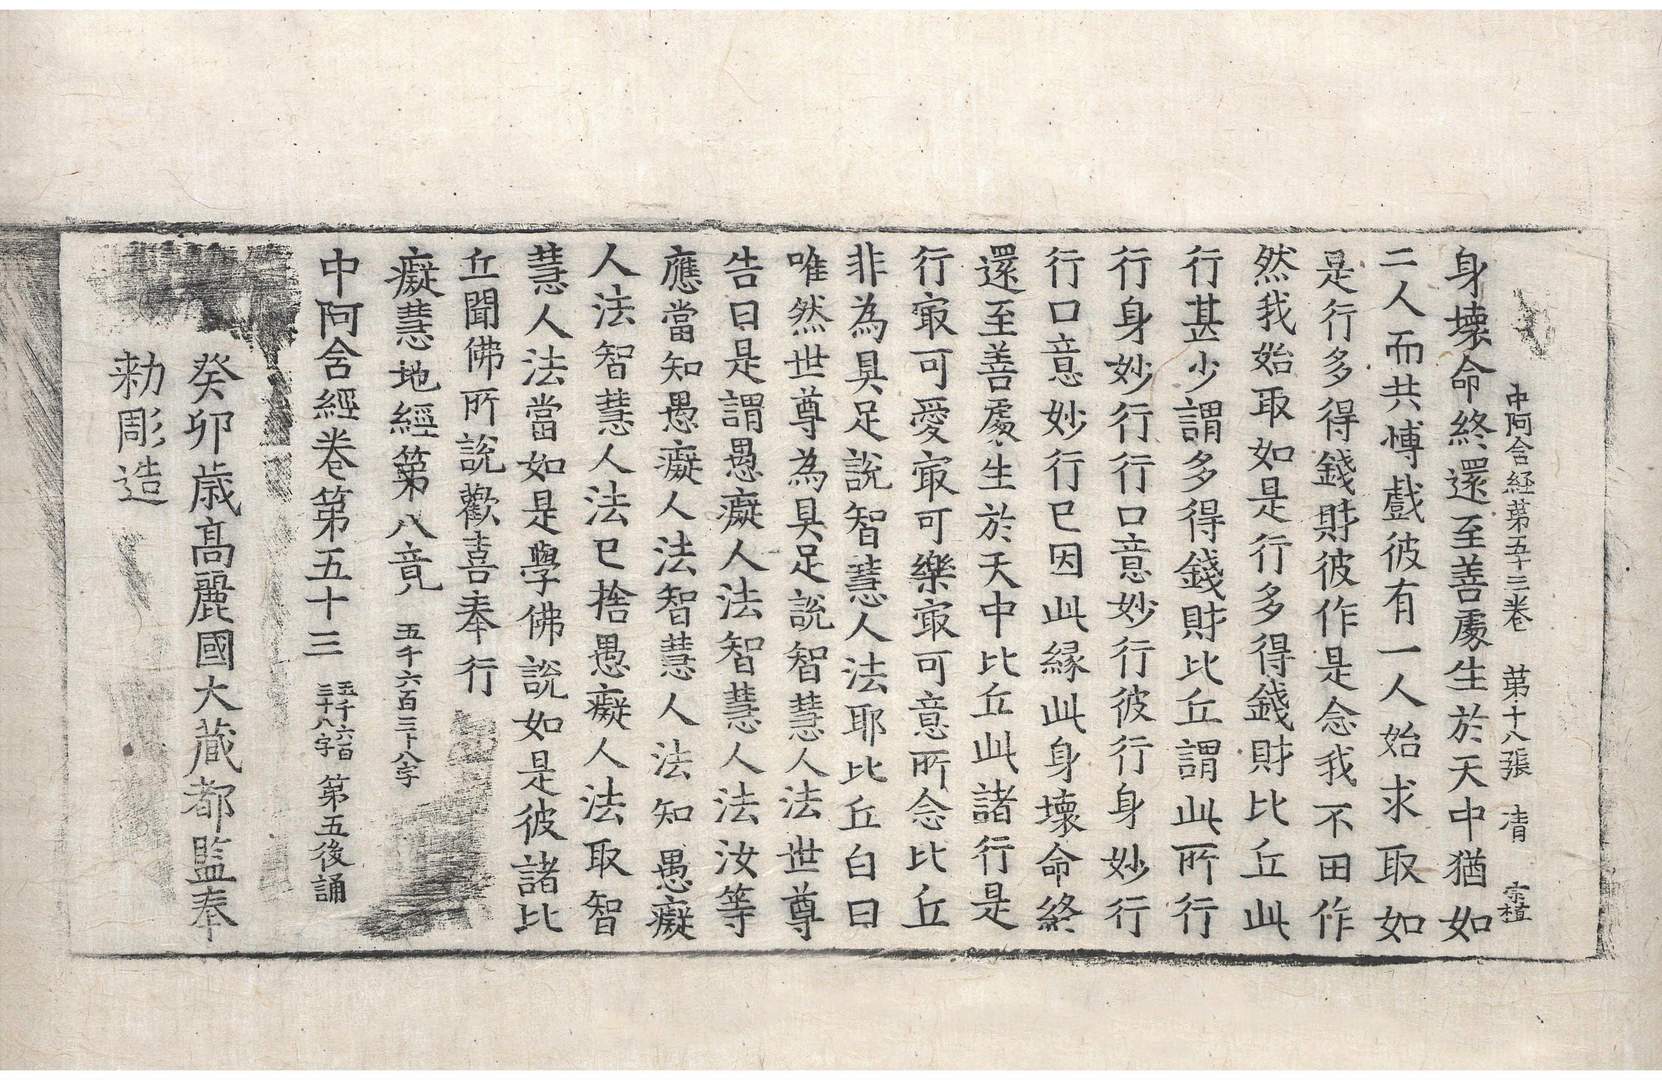 中阿含経苐五十三巻 苐十八張 凊
身壞命終還至善處生於天中猶如
二人而共博戲彼有一人始求取如
是行多得錢財彼作是念我不田作
然我始取如是行多得錢財比丘此
行甚少謂多得錢財比丘謂此所行
行身妙行行口意妙行彼行身妙行
行口意妙行已因此緣此身壞命終
還至善處生於天中比丘此諸行是
行㝡可愛㝡可樂㝡可意所念比丘
非為具足說智慧人法耶比丘白曰
唯然世尊為具足說智慧人法世尊
告曰是謂愚癡人法智慧人法汝等
應當知愚癡人法智慧人法知愚癡
人法智慧人法已捨愚癡人法取智
慧人法當如是學佛說如是彼諸比
丘聞佛所說歡喜奉行
癡慧地經第八竟 五千六百三十八字
中阿含經卷第五十三 五千六百三十八字 第五後誦
癸卯歳高麗國大藏都監奉
勅彫造